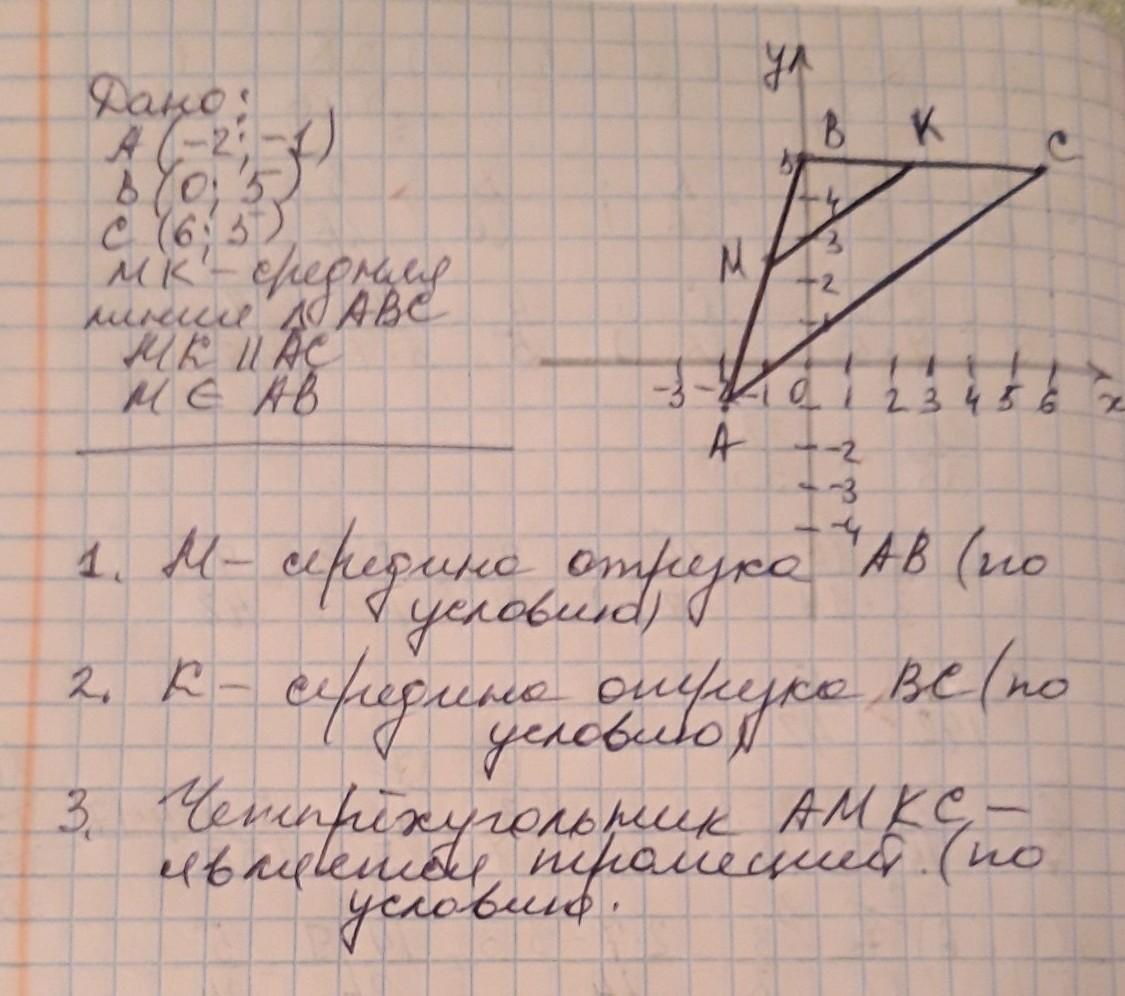 Дано:
A (-2; -1)
B (0; 5)
C (6; 5)
MK - средняя
линия △ ABC
MK || AC
M ∈ AB
y
B K C
5
4
3
M
2
1
-3 -2 -1 0 1 2 3 4 5 6 x
A
-2
-3
-4
1. M - середина отрезка AB (по
условию)
2. K - середина отрезка BC (по
условию)
3. Четырёхугольник AMKC -
является трапецией. (по
условию.